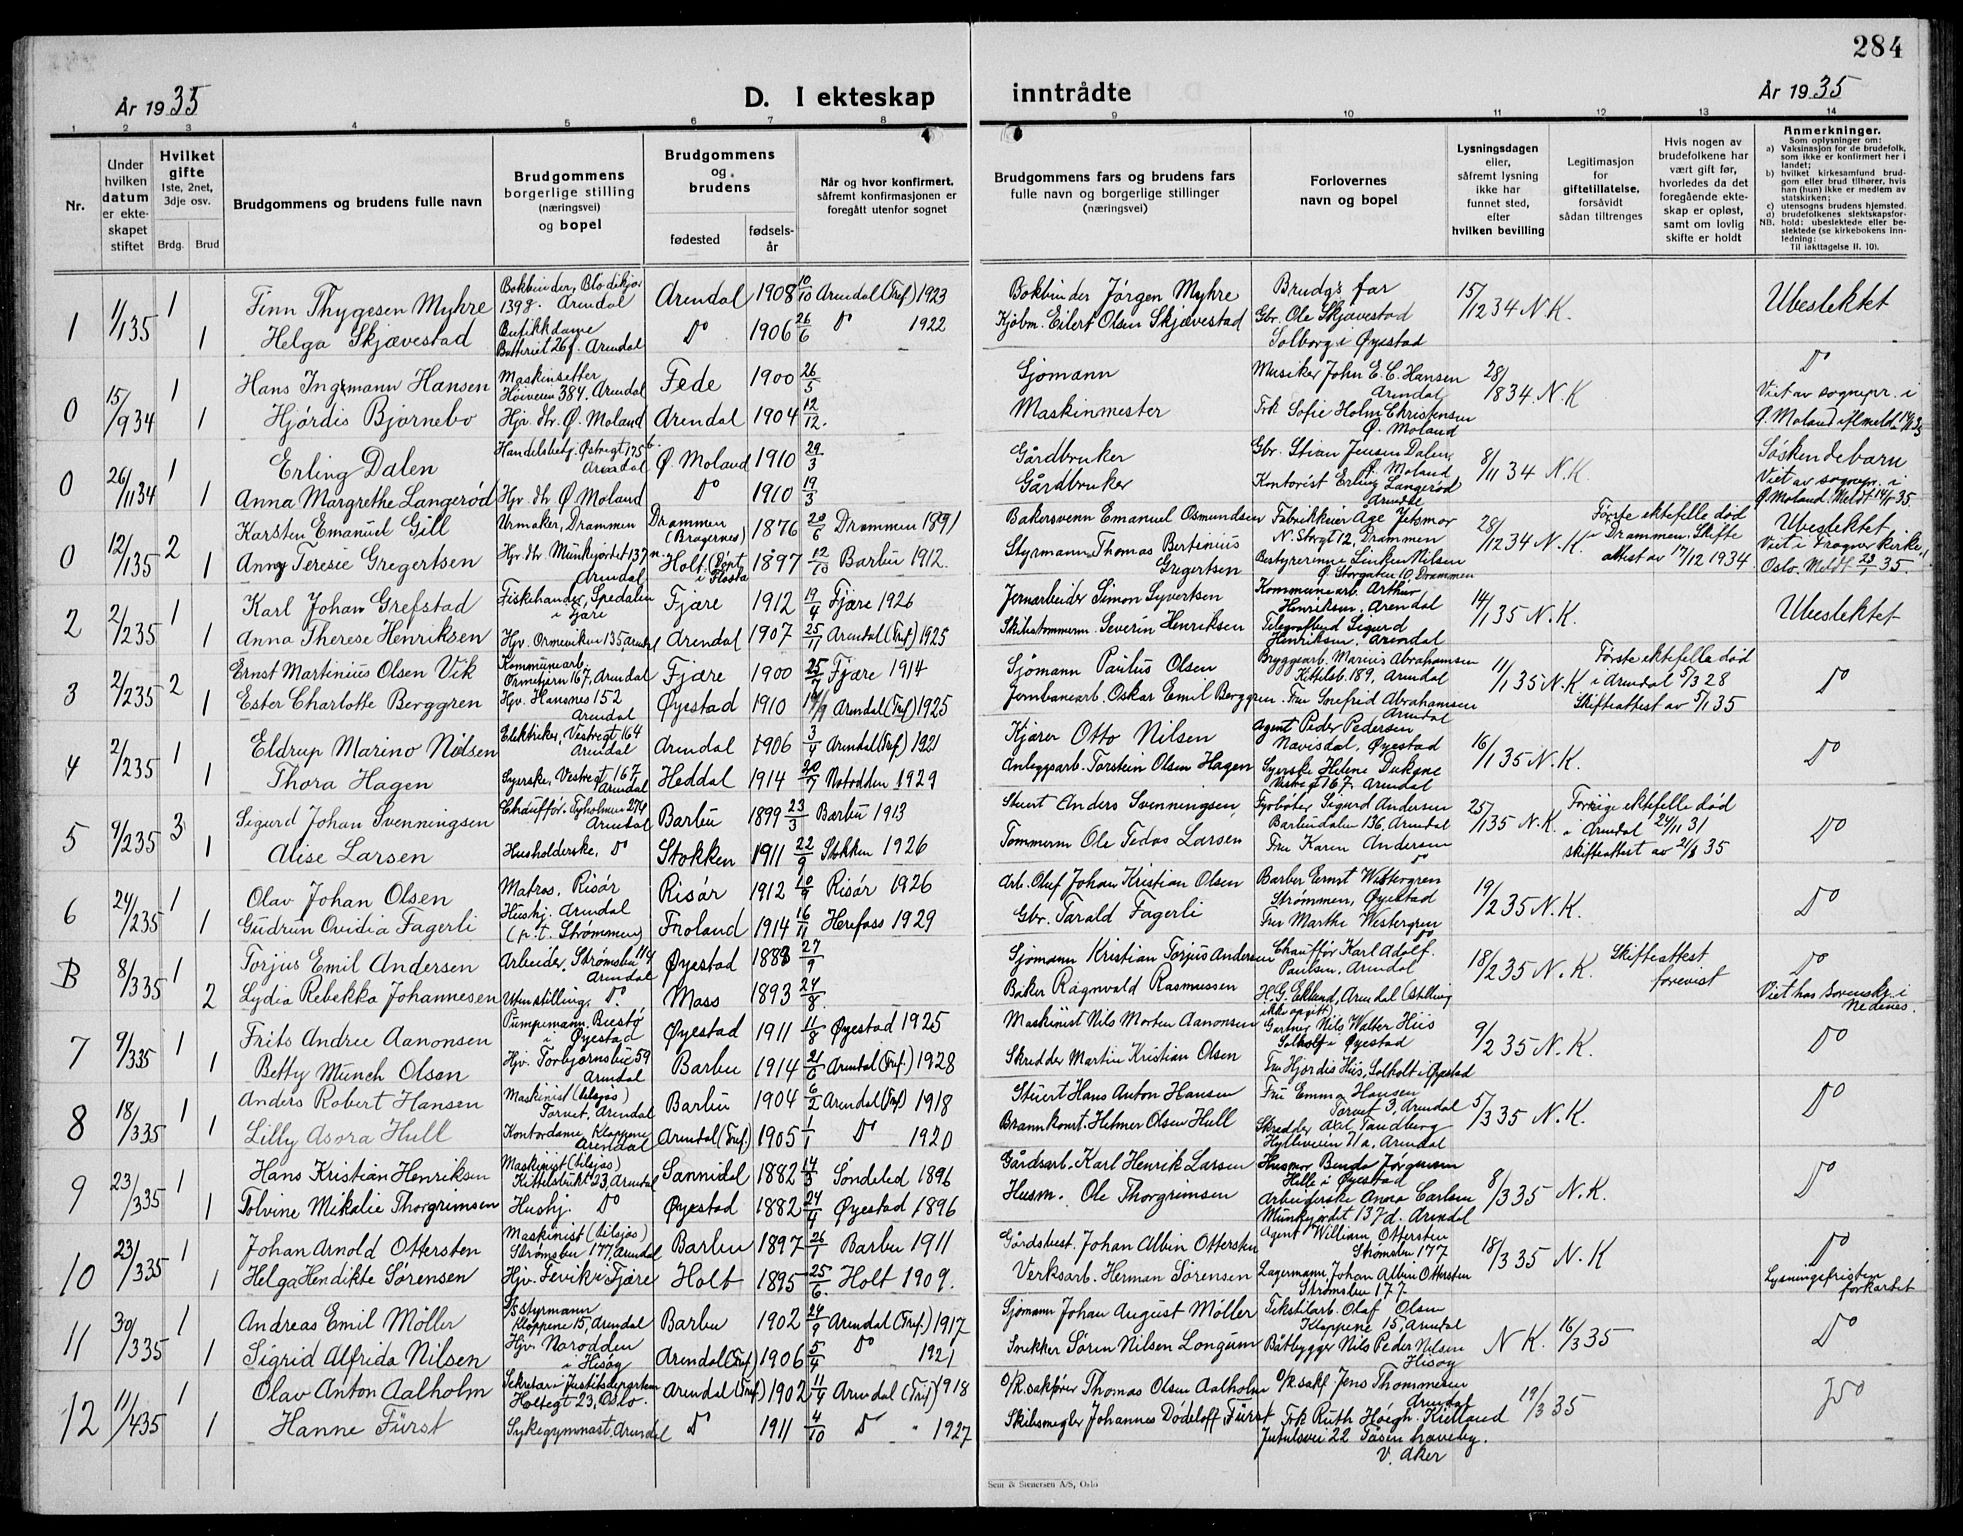 284
År 1935
D. I ekteskap
inntrådte
År 1935
1 2 3 4 5 6 7 8 9 10 11 12 13 14
Nr.
Under hvilken datum er ekteskapet stiftet
Hvilket gifte 1ste, 2net, 3dje osv.
Brdg. Brud
Brudgommens og brudens fulle navn
Brudgommens borgerlige stilling (næringsvei) og bopel
Brudgommens og brudens
fødested
fødsels-år
Når og hvor konfirmert, såfremt konfirmasjonen er foregått utenfor sognet
Brudgommens fars og brudens fars fulle navn og borgerlige stillinger (næringsvei)
Forlovernes navn og bopel
Lysningsdagen eller, såfremt lysning ikke har funnet sted, efter hvilken bevilling
Legitimasjon for giftetillatelse, forsåvidt sådan tiltrenges
Hvis nogen av brudefolkene har vært gift før, hvorledes da det foregående ekteskap er opløst, samt om lovlig skifte er holdt
Anmerkninger.
Som oplysninger om:
a) Vaksinasjon for de brudefolk, som ikke er konfirmert her i landet;
b) hvilket kirkesamfund brudgom eller brud tilhører, hvis han (hun) ikke er medlem av statskirken;
c) utensogns brudens hjemsted.
d) brudefolkenes slektskapsforhold: ubeslektede eller beslektede (se kirkebokens innledning:
NB. Til iakttagelse II. 10).
1 1/1 35 1 Finn Thygesen Myhre Bokbinder, Blødekjær 139 g. Arendal Arendal 1908 10/10 Arendal (Tref.) 1923 Bokbinder Jörgen Myhre Brudg's far 15/12 34 N.K. Ubeslektet
1 Helga Skjævestad Butikkdame Batteriet 26 f. Arendal Do 1906 26/6 Do 1922 Kjölm. Eilert Olsen Skjævestad Gbr. Ole Skjævestad Solborg i Øyestad
0 15/9 34 1 Hans Ingemann Hansen Maskinsetter Höiveien 384. Arendal Fede 1900 26/5 Sjömann Musiker John E. C. Hansen Arendal 28/8 34. N.K Do
1 Hjördis Bjornebo Hjv. dtr. Ø. Moland Arendal 1904 12/12. Maskinmester Frk Sofie Holm Christensen Ø. Moland Viet av sognepr. i Ø. Moland
0 26/11 34 1 Erling Dalen Handelsbetj. Østregt 175 b. Arendal Ø. Moland 1910 29/3 Gårdbruker Gbr. Stian Jensen Dalen, Ø. Moland 8/11 34 N.K. Søskendebarn
1 Anna Margrethe Langeröd Hjv. dtr Ø. Moland Do 1910 19/3 Gårdbruker Kontorist Erling Langeröd Arendal Viet av sognepr. i Ø. Moland. Meldt 14/1 35.
0 12/1 35 2 Karsten Emanuel Gill Urmaker, Drammen Drammen (Bragernes) 1876 20/6 Drammen 1891 Bakersvenn Emanuel Osmundsen Fabrikkeier Åge Jetsmor N. Storgt 12, Drammen 28/12 34 N.K. Första ektefelle död i Drammen. Skifteattest av 17/12 1934 Ubeslektet
1 Anny Teresie Gregertsen Hjv. dtr Munkejordet 137 n. Arendal Holt (Dypv. i Flosta 1897 12/10 Barbu 1912. Styrmann Thomas Bertinius Gregertsen Bestyrerinne Linken Nilsen Ø. Storgaten 10 Drammen Viet i Frogner kirke, Oslo. Meldt 23/1 35.
2 2/2 35 1 Karl Johan Grefstad Fiskehandler, Spedalen i Fjære Fjære 1912 19/4 Fjære 1926 Jernarbeider Simon Syvertsen Kommunearb. Arthur Henriksen, Arendal 14/1 35 N.K. Ubeslektet
1 Anna Therese Henriksen Hjv. Ormeviken 135, Arendal Arendal 1907 25/11 Arendal (Tref.) 1925 Skibstömmerm. Severin Henriksen Telegrafbud Sigurd Henriksen. Arendal
3 2/2 35 2 Ernst Martinius Olsen Vik Kommunearb. Ormetjern 167, Arendal Fjære 1900 25/7 Fjære 1914 Sjömann Paulus Olsen Bryggearb. Marius Abrahamsen Kittelsb. 189, Arendal 11/1 35 N.K. Første ektefelle död i Arendal 5/3 28 Do
1 Ester Charlotte Berggren Hjv. Hansnes 152 Arendal Øyestad 1910 14/9 Arendal (Tref.) 1925 Jernbanearb. Oskar Emil Berggren. Fru Snefrid Abrahamsen Arendal Skifteattest av 5/1 35
4 2/2 35 1 Eldrup Marino Nilsen Elektriker, Vestregt 164 Arendal Arendal 1906 3/4 Arendal (Tref.) 1921 Kjörer Otto Nilsen Agent Peder Pedersen Navisdal, Øyestad 16/1 35 N.K. Do
1 Thora Hagen Syerske, Vestregt 167 Arendal Heddal 1914 20/7 Notodden 1929 Anleggsarb. Torsten Olsen Hagen Syerske Helene Dukane Vestregt 167. Arendal
5 9/2 35 3 Sigurd Johan Svenningsen Chauffør. Tyholmen 274 Arendal Barbu 1899 23/3 Barbu 1913 Stuert Anders Svenningsen Fyrböter Sigurd Andersen Barbudalen 136, Arendal 25/1 35 N.K. Forrige ektefelle död i Arendal 24/11 31 Do
1 Alise Larsen Husholderske, Do Stokken 1911 22/9 Stokken 1926 Tömmerm Ole Tedas Larsen Fru Karen Andersen Do skifteattest av 21/1 35
6 24/2 35 1 Olav Johan Olsen Matros. Risör Risör 1912 10/9 Risör 1926 Arb. Oluf Johan Kristian Olsen Barber Ernst Westergren Strømmen, Øyestad 19/2 35 N.K. Do
1 Gudrun Ovidia Fagerli Hushj. Arendal (p.t. Strömmen) Froland 1914 16/11 Herefoss 1929 Gbr. Tarald Fagerli Fru Marthe Westergren Do
B 8/3 35 1 Torjus Emil Andersen Arbeider, Strømsbu 114 Arendal Øyestad 1888 27/9 Sjömann Kristian Torjus Andersen Chauffør Karl Adolf Paulsen, Arendal 18/2 35 N.K. Skifteattest forevist Do
2 Lydia Rebekka Johannesen Uten stilling, Do. Moss 1893 24/8. Baker Ragnvald Rasmussen H. G. Eklund, Arendal (stilling ikke opgitt) Viet hos sorenskr. i Nedenes.
7 9/3 35 1 Frits Andree Aanonsen Pumpemann, Biestø i Øyestad Øyestad 1911 11/8 Øyestad 1925 Maskinist Nils Morten Aanonsen Gartner Nils Walter Hiis Solholt i Øyestad 9/2 35 N.K. Do
1 Betty Münch Olsen Hjv. Torbjørnsbu 59 Arendal Barbu 1914 21/6 Arendal (Tref.) 1928 Skredder Martin Kristian Olsen Fru Hjördis Hiis, Solholt i Øyestad
8 18/3 35 1 Anders Robert Hansen Maskinist (tilsjøs) Torvet, Arendal Barbu 1904 6/2 Arendal (Tref) 1918 Stuert Hans Anton Hansen Fru Emma Hansen Torvet 3, Arendal 5/3 35 N.K. Do
1 Lilly Asora Hull Kontordame, Kloppene Arendal Arendal (Tref.) 1905 1/1 Do 1920 Brannkonst. Helmer Olsen Hull Skredder Axel Sandberg Hylleveien 71a, Arendal
9 23/3 35 1 Hans Kristian Henriksen Maskinist (tilsjøs) Kittelsbukt 23, Arendal Sannidal 1882 14/3 Söndeled 1896 Gårdsarb. Karl Henrik Larsen Husmor Benda Jørgensen Helle i Øyestad 8/3 35 N.K. Do
1 Tolvine Mikalie Thorgrimsen Hushj. Do Øyestad 1882 24/4 Øyestad 1896 Husm. Ole Thorgrimsen Arbeiderske Anna Carlsen Munkejordet 137 d. Arendal
10 23/3 35 1 Johan Arnold Ottersten Maskinist (tilsjøs) Strømsbu 177, Arendal Barbu 1897 26/1 Barbu 1911 Gårdsbest. Johan Albin Ottersten Agent William Ottersten Strömsbu 177 18/3 35 N.K Do
1 Helga Hendikte Sörensen Hjv. Fevik i Fjære Holt 1895 25/6. Holt 1909. Verksarb. Herman Sörensen Lagermann Johan Albin Ottersten Strömsbu 177. Lysningsfristen forkortet
11 30/3 35 1 Andreas Emil Möller styrmann Kloppene 15, Arendal Barbu 1902 24/9 Arendal (Tref.) 1917 Sjömann Johan August Möller Tekstilarb. Olaf Olsen Kloppene 15, Arendal N.K. 16/3 35 Do
1 Sigrid Alfrida Nilsen Hjv. Narodden i Hisøy Arendal (Tref) 1906 5/4 Do 1921 Snekker Sören Nilsen Longum Båtbygger Nils Peder Nilsen Hisøy
12 11/4 35 1 Olav Anton Aalholm Sekretær i Justisdepartem. Holtegt 23, Oslo. Arendal (Tref) 1902 11/4 Arendal (Tref) 1918 O/R. sakfører Thomas Olsen Aalholm O/R. sakf Jens Thommesen Arendal 19/3 35 Do
1 Hanne Fürst Sykegymnast, Arendal Do 1911 4/10 Do 1927 Skibsmegler Johannes Dödeloff Fürst Frk Ruth Høegh. Kielland Jutulsvei 22 Tåsen haveby. V. Aker
Sem & Stenersen A/S, Oslo